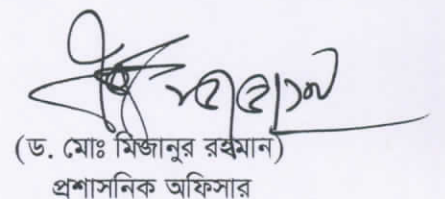 (ড. মোঃ মিজানুর রহমান)
প্রশাসনিক অফিসার